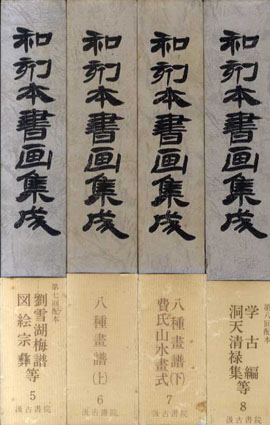 和刻本書画集成
第七回配本
劉雪湖梅譜等
図絵宗彝
5
汲古書院
和刻本書画集成
八種畫譜(上)
6
汲古書院
和刻本書画集成
八種畫譜(下)
費氏山水畫式
7
汲古書院
和刻本書画集成
第八回配本
学古編等
洞天清禄集
8
汲古書院